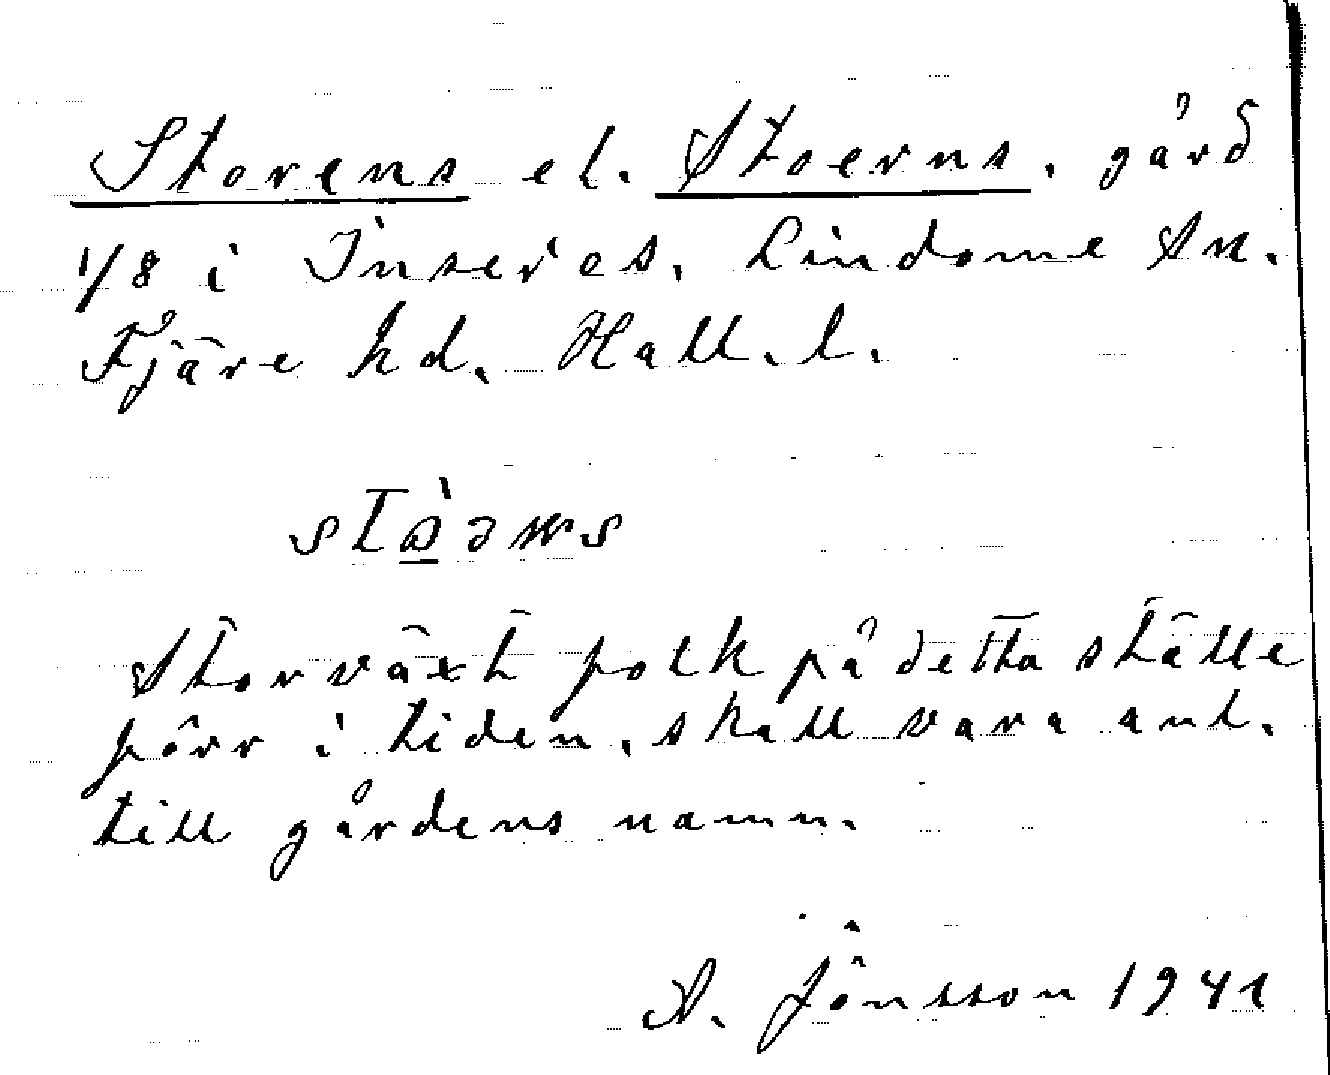 Storens el. Stoerns. gård
1/8 i Inseros. Lindome Sn.
Fjäre hd. Hall. l.
Storväxt folk på detta ställe
förr i tiden. skall vara anl.
till gårdens namn.
A. Jönsson 1941